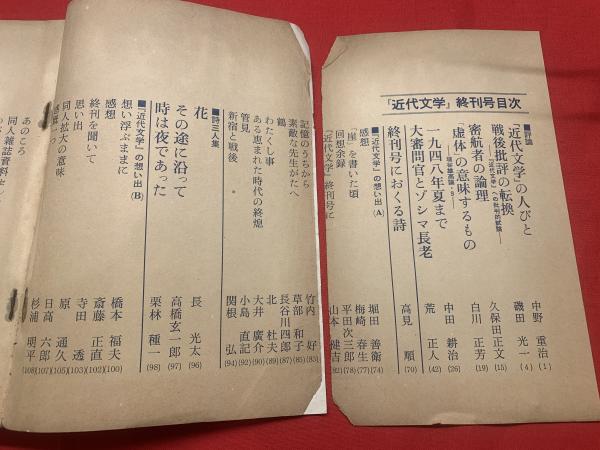 「近代文学」終刊号目次
■評論
「近代文学」の人びと 中野 重治 (1)
戦後批評の転換 磯田 光一 (4)
―「近代文学」への批判的試論―
密航者の論理 久保田正文 (15)
「虚体」の意味するもの 白川 正芳 (19)
―埴谷雄高論・S―
一九四八年夏まで 中田 耕治 (26)
大審問官とゾシマ長老 荒 正人 (42)
終刊号におくる詩 高見 順 (70)
■「近代文学」の想い出(A)
感想 堀田 善衛 (74)
「崖」を書いた頃 梅崎 春生 (77)
回想余録 平田次三郎 (78)
「近代文学」終刊号に 山本 健吉 (82)
記憶のうちから 竹内 好 (83)
素敵な先生がたへ 草部 和子 (85)
鶴 長谷川四郎 (87)
わたくし事 北 杜夫 (89)
ある恵まれた時代の終焼 大井 廣介 (90)
管見 小島 直記 (92)
新宿と戦後 関根 弘 (94)
■詩三人集
花 長 光太 (96)
その途に沿って 高橋玄一郎 (97)
時は夜であった 栗林 種一 (98)
■「近代文学」の想い出(B)
想い浮ぶままに 橋本 福夫 (100)
感想 斎藤 正直 (102)
終刊を聞いて 寺田 透 (103)
思い出 原 通久 (105)
同人拡大の意味 日高 六郎 (107)
杉浦 明平 (108)
あのころ
同人雑誌資料